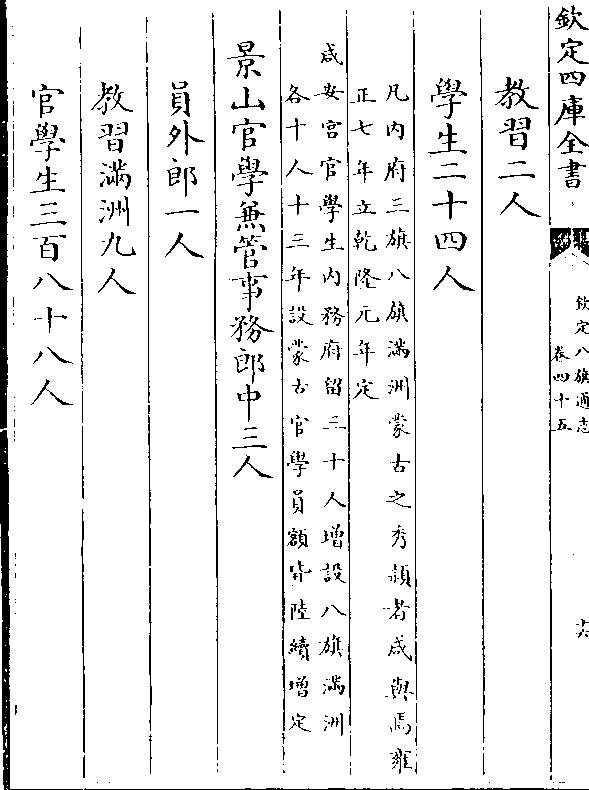 欽定四庫全書
欽定八旗通志
卷四十五
十六
教習二人
學生二十四人
凡内府三旗八旗滿洲蒙古之秀頴者咸與焉雍
正七年立乾隆元年定
咸安宫官學生内務府留三十人增設八旗滿洲
各十人十三年設蒙古官學員額皆陸續增定
景山官學兼管事務郎中三人
員外郎一人
教習滿洲九人
官學生三百八十八人